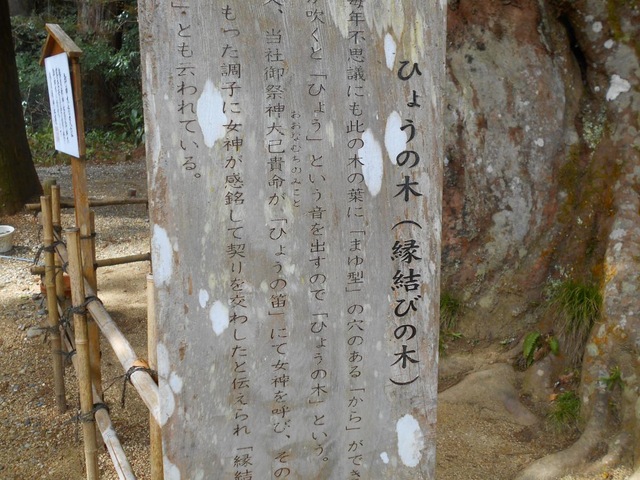 ひょうの木（縁結びの木）
毎年不思議にも此の木の葉に「まゆ型」の穴のある「から」ができ
が吹くと「ひょう」という音を出すので「ひょうの木」という。
、当社御祭神大己貴命が「ひょうの笛」にて女神を呼び、その
おおなむちのみこと
もった調子に女神が感銘して契りを交わしたと伝えられ「縁結
」とも云われている。